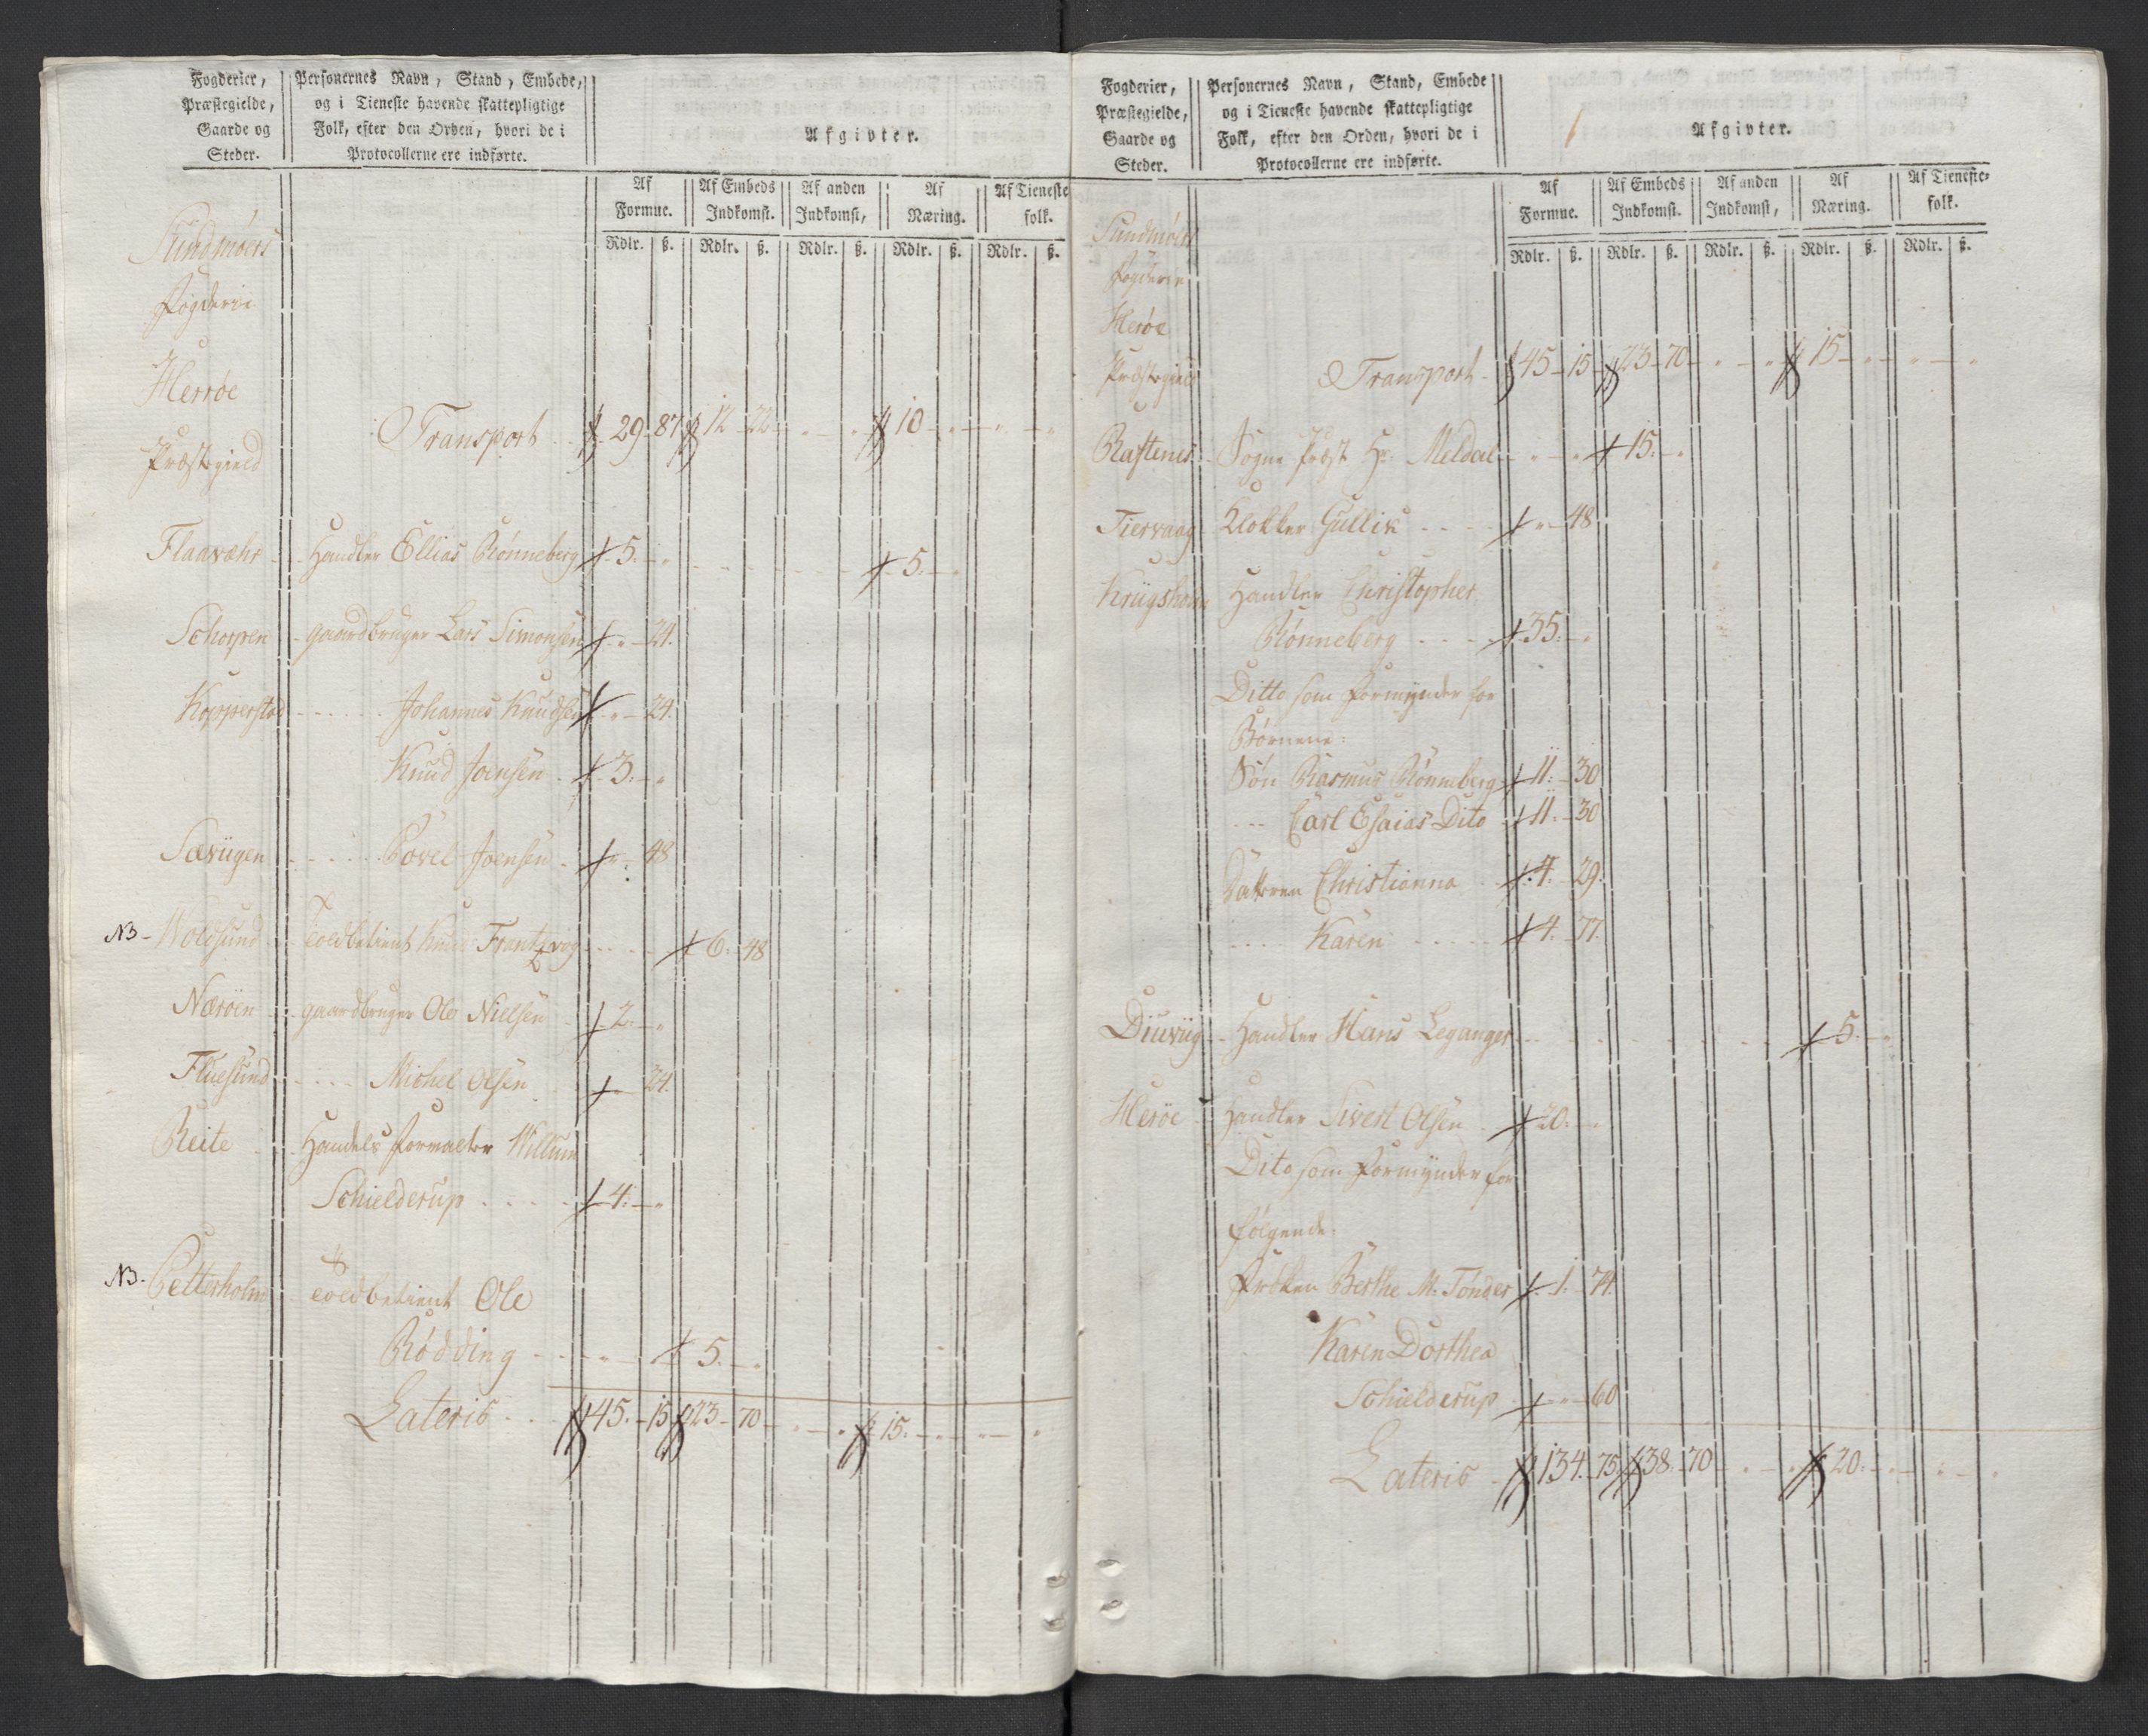 Fogderier,
Præstegielde,
Gaarde og
Steder.
Personernes Navn, Stand, Embede,
og i Tieneste havende skattepligtige
Folk, efter den Orden, hvori de i
Protocollerne ere indførte.
Afgivter.
Af Formue. Af Embeds Indkomst. Af anden Indkomst, Af Næring. Af Tieneste folk.
Rdlr. ß. Rdlr. ß. Rdlr. ß. Rdlr. ß. Rdlr. ß.
Sundmøers
Fogderie
Herröe
Præstegield
Transport 29 - 87 12 - 22 10
Flaavæhr Handler Ellias Rønneberg 5. 5.
Schorpen gaardbruger Lars Simonsen 24.
Kopperstad Johannes Knudsen 24.
Knud Joensen 3.
Sævügen Povel Joensen 48
NB - Woldsund Toldbetient Knud Frantzvog 6. 48
Næröen gaardbruger Ole Nielsen 2.
Fluesund Michel Olsen 24.
Reite Handels Forvalter Willum
Schielderup 4.
NB - Petterholm Toldbetient Ole
Rødding 5.
Lateris 45. - 15 23 - 70 15.
Fogderier,
Præstegielde,
Gaarde og
Steder.
Personernes Navn, Stand, Embede
og i Tieneste havende skattepligtige
Folk, efter den Orden, hvori de i
Protocollerne ere indførte.
Afgivter.
Af Formue. Af Embeds Indkomst. Af anden Indkomst, Af Næring. Af Tieneste- folk.
Rdlr. ß. Rdlr. ß. Rdlr. ß. Rdlr. ß. Rdlr. ß.
Sundmöers
Fogderie
Heröe
Præstegield
Transport 45 - 15 23 - 70 15
Raftenes Sogne Præst Hr. Meldal 15.
Tiervaag Klokker Gullik 48
Krügsholm Handler Christopher
Rønneberg 35.
Ditto som Formynder for
Børnene:
Søn Rasmus Rønneberg 11. - 30
Carl Esaias Dito 11. - 30
Datteren Christianna 4. 29.
Karen 4. 77.
Diuvüg Handler Hans Leganger 5.
Heröe Handler Sivert Olsen 20.
Dito som Formynder for
følgende.
Frøken Berthe M. Tønder 1. 74.
Karen Dorthea
Schielderup 60
Lateris 134. - 75 38. - 70 20.